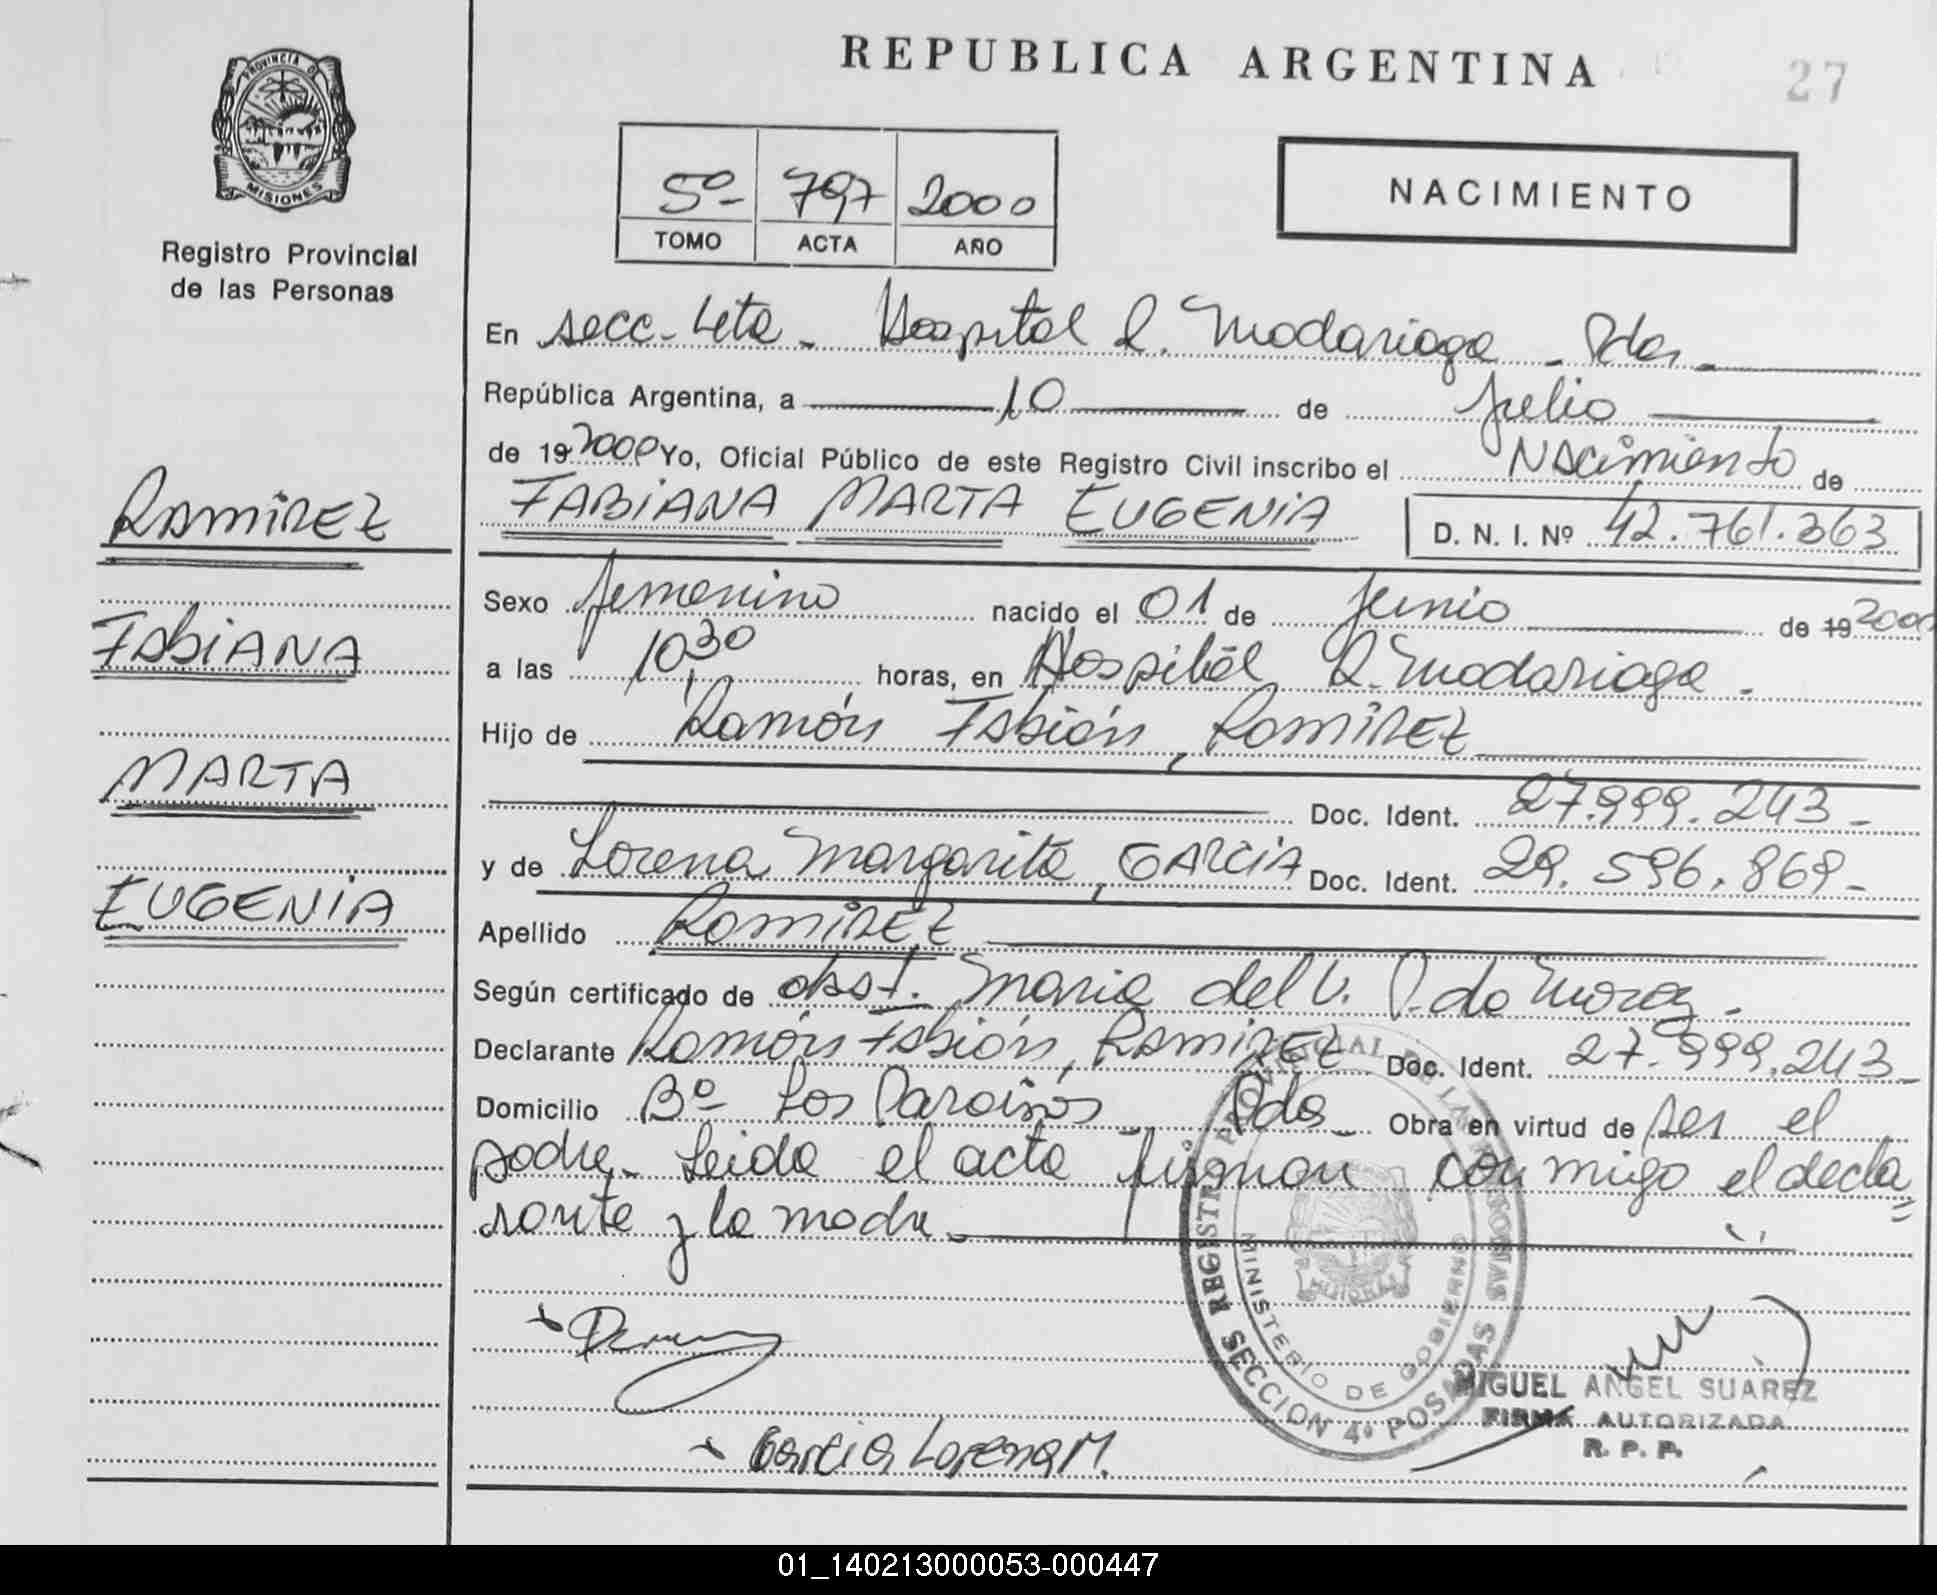 REPUBLICA ARGENTINA
27
PROVINCIA DE
MISIONES
Registro Provincial
de las Personas
5º 797 2000
TOMO ACTA AÑO
NACIMIENTO
En secc. 4ta. Hospital R. Madariaga - Pdas
República Argentina, a 10 de Julio
de 19 2000 Yo, Oficial Público de este Registro Civil inscribo el Nacimiento de
FABIANA MARTA EUGENIA D. N. I. Nº 42.761.363
RAMIREZ
FABIANA
MARTA
EUGENIA
Sexo femenino nacido el 01 de Junio de 19 2000
a las 10,30 horas, en Hospital R. Madariaga.
Hijo de Ramón Fabián, RAMIREZ
Doc. Ident. 27.999.243-
y de Lorena Margarita, GARCIA Doc. Ident. 29.596.869-
Apellido RAMIREZ
Según certificado de obst. Maria del V. P. de Moraz.
Declarante Ramón Fabián, RAMIREZ Doc. Ident. 27.999.243-
Domicilio Bº Los Paraisos - Pdas - Obra en virtud de ser el
padre. Leida el acta firman conmigo el decla
rante y la madre.
REGISTRO PROVINCIAL DE LAS PERSONAS
MINISTERIO DE GOBIERNO
SECCION 4º POSADAS
MIGUEL ANGEL SUAREZ
FIRMA AUTORIZADA
R. P. P.
Garcia Lorena M.
01_140213000053-000447